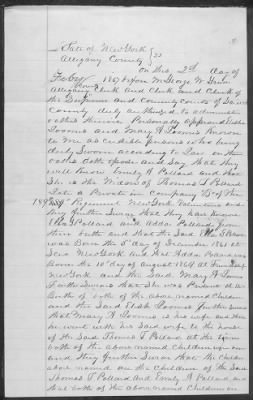 State of New York } ss
Allegany County
On this 2nd day of
1867 before me George W. Green
Allegany County Clerk and Clerk and Clerk of
the Supreme and County Courts of Said
County duly authorized to administer
oaths Personally appeared
Toomis and Mary A Toomis Known
to me as credible persons who being
duly Sworn according to Law on their
oaths doth depose and Say that they
well Know Emily A Pollard and that
She is the Widow of Thomas T Pollard
Late a Private in Company of the
189 Regiment New York Volunteers and
they further Swear that they have Known
Pollard and Adda Pollard from
their birth and that the Said
was Born the 5th day of December 1861 at
New York and that Adda
born the 10th day of August 1864 at
New York and the Said Mary A
further Swears that She was Present at the
Birth of both of the above named Children
and the Said Toomis further Swears
that Mary A Toomis is his wife and that
he went with his Said wife to the house
of the Said Thomas T Pollard at the time
both of the above named Children were born
and they further Swear that the Children
above named are the Children of the Said
Thomas T Pollard and Emily A Pollard and
that both of the above named Children are